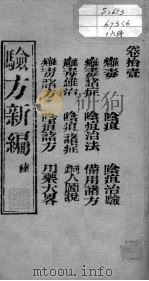 卷拾壹
癰毒 陰疽 陰疽治驗
癰毒諸症 陰疽治法 備用諸方
癰毒雜治 陰疽諸症 銅人圖說
癰毒諸方 陰疽諸方 用藥大畧
驗方新編
www.modao.com